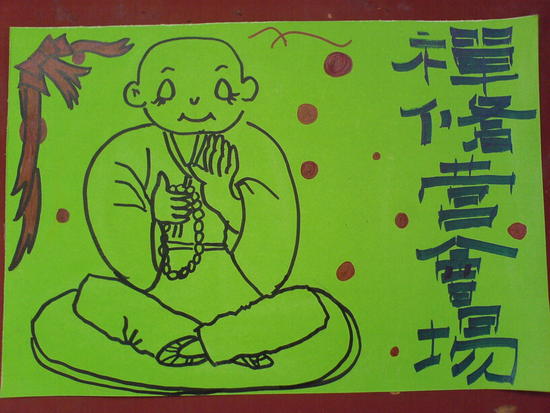 禪修营會場